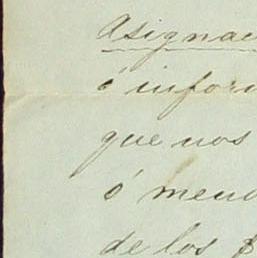 Asignac
ó infor
que nos
ó men
de los $